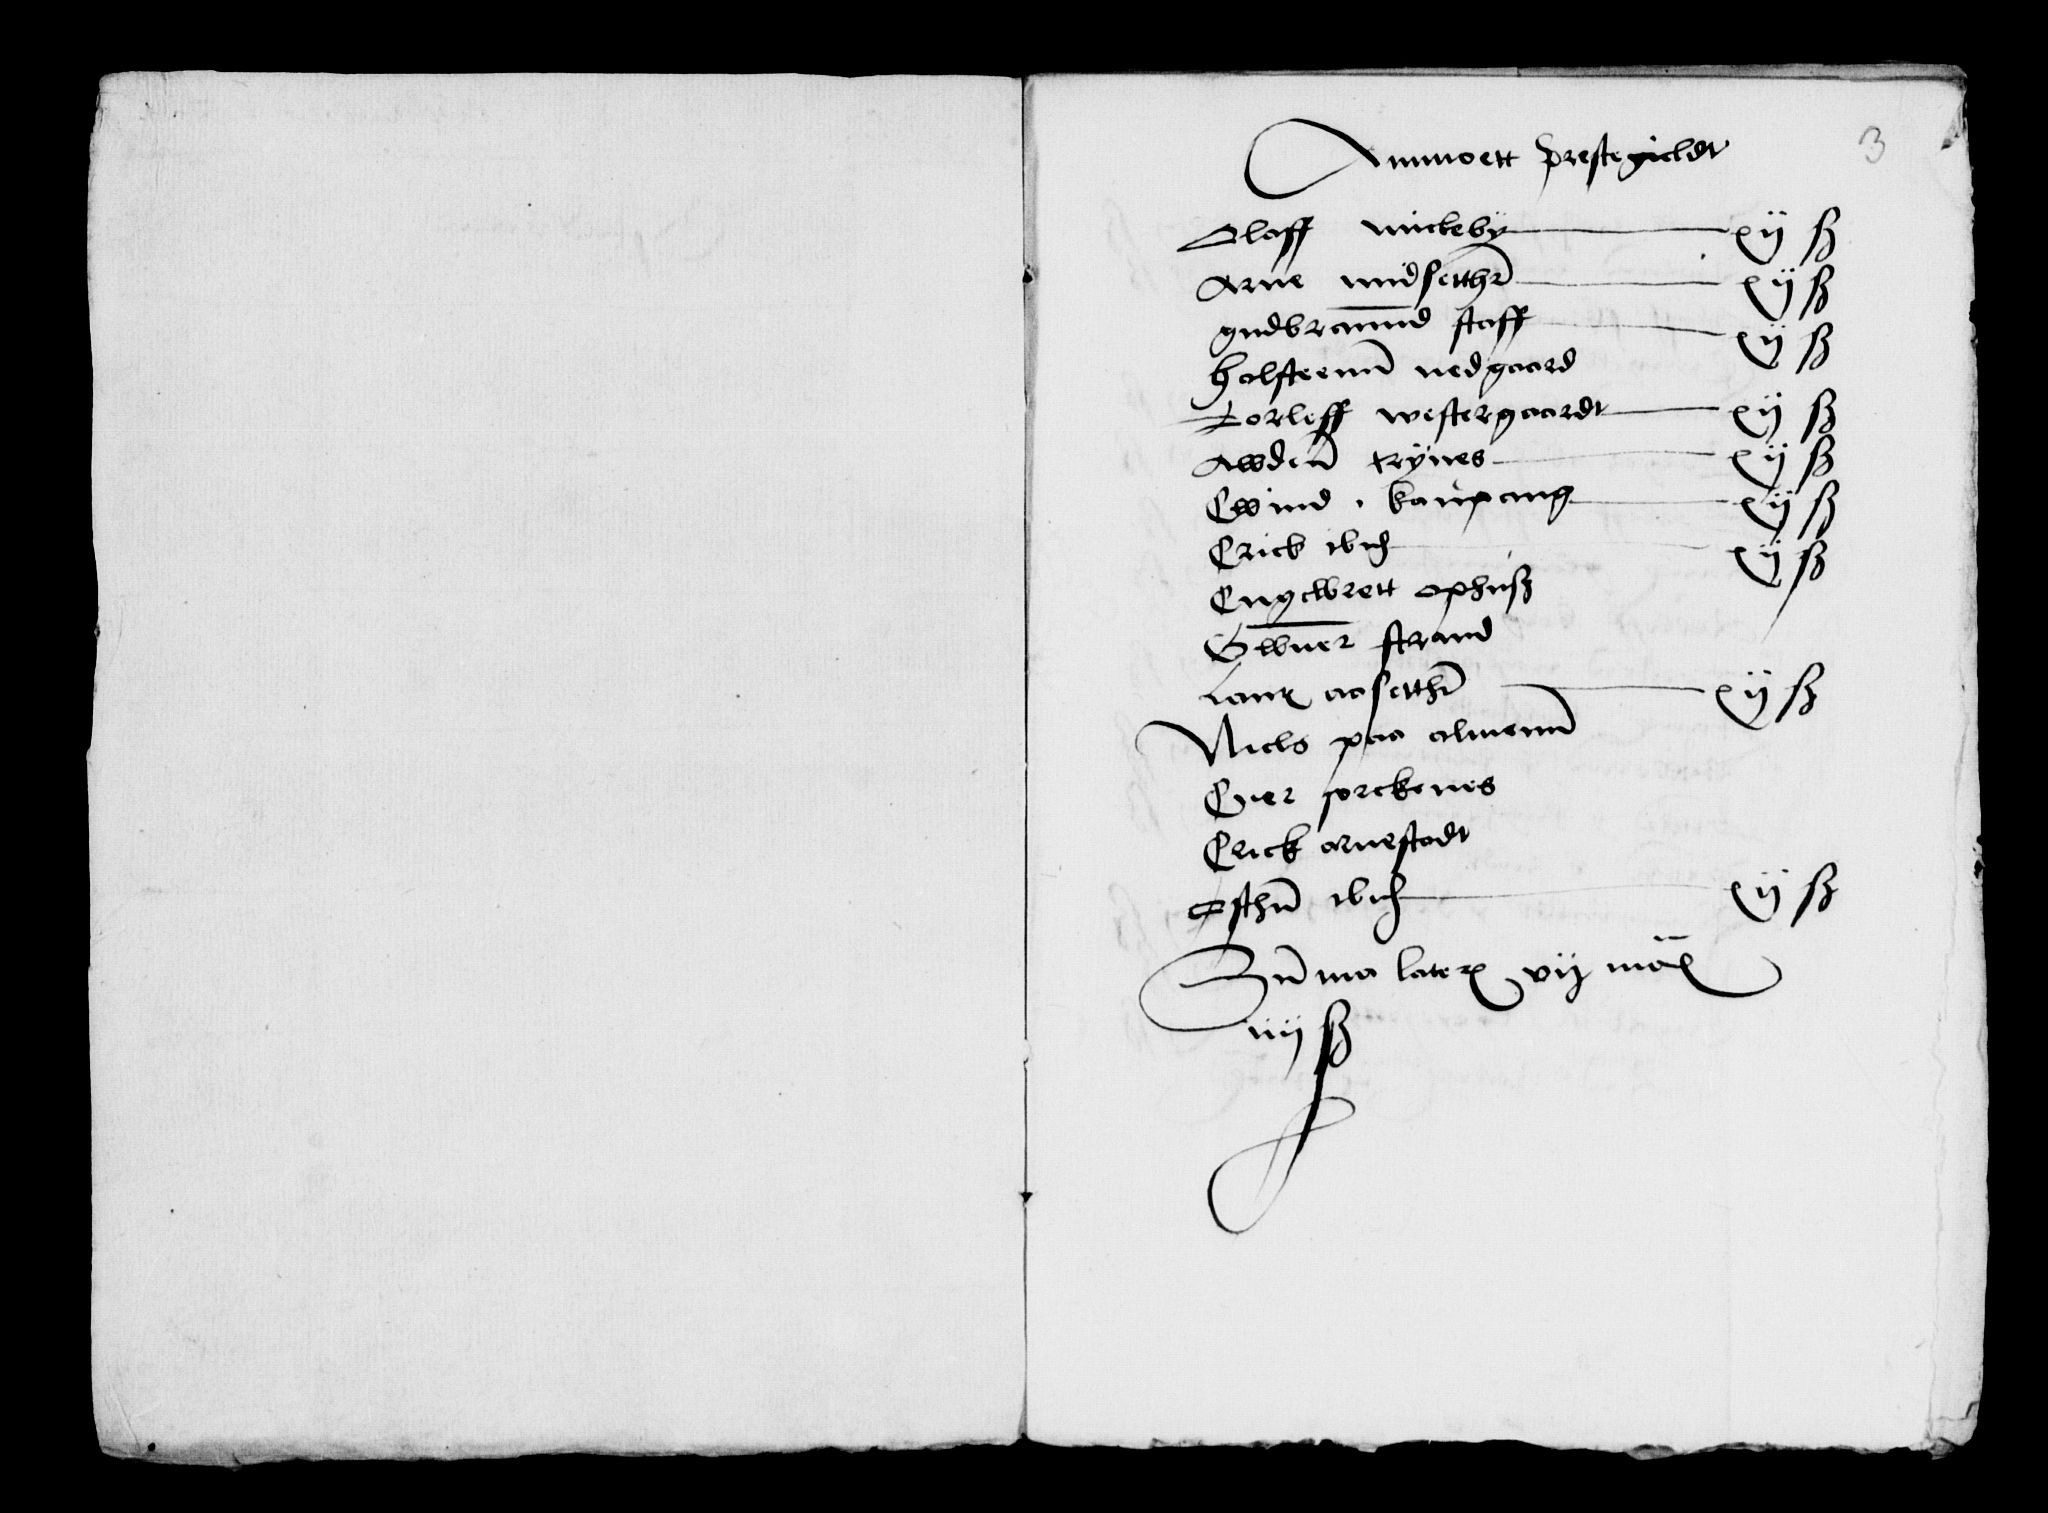 3
Ammoett prestegieldt
Olaff mickeby xij ß
Arne midsetthr xij ß
gudbrannd staff xij ß
Holsteenn nedgaard
Torleff westergaardt xij ß
Awdenn trÿnes xij ß
Ewind i kaupang xij ß
Erick ibid xij ß
Engelbrett ophuß
Gwner strand
Laur aasetthr xij ß
Niels paa almenn
Euer sorckenes
Erick arnestadt
Østhen ibid xij ß
Summa lateris vij march
iiij ß